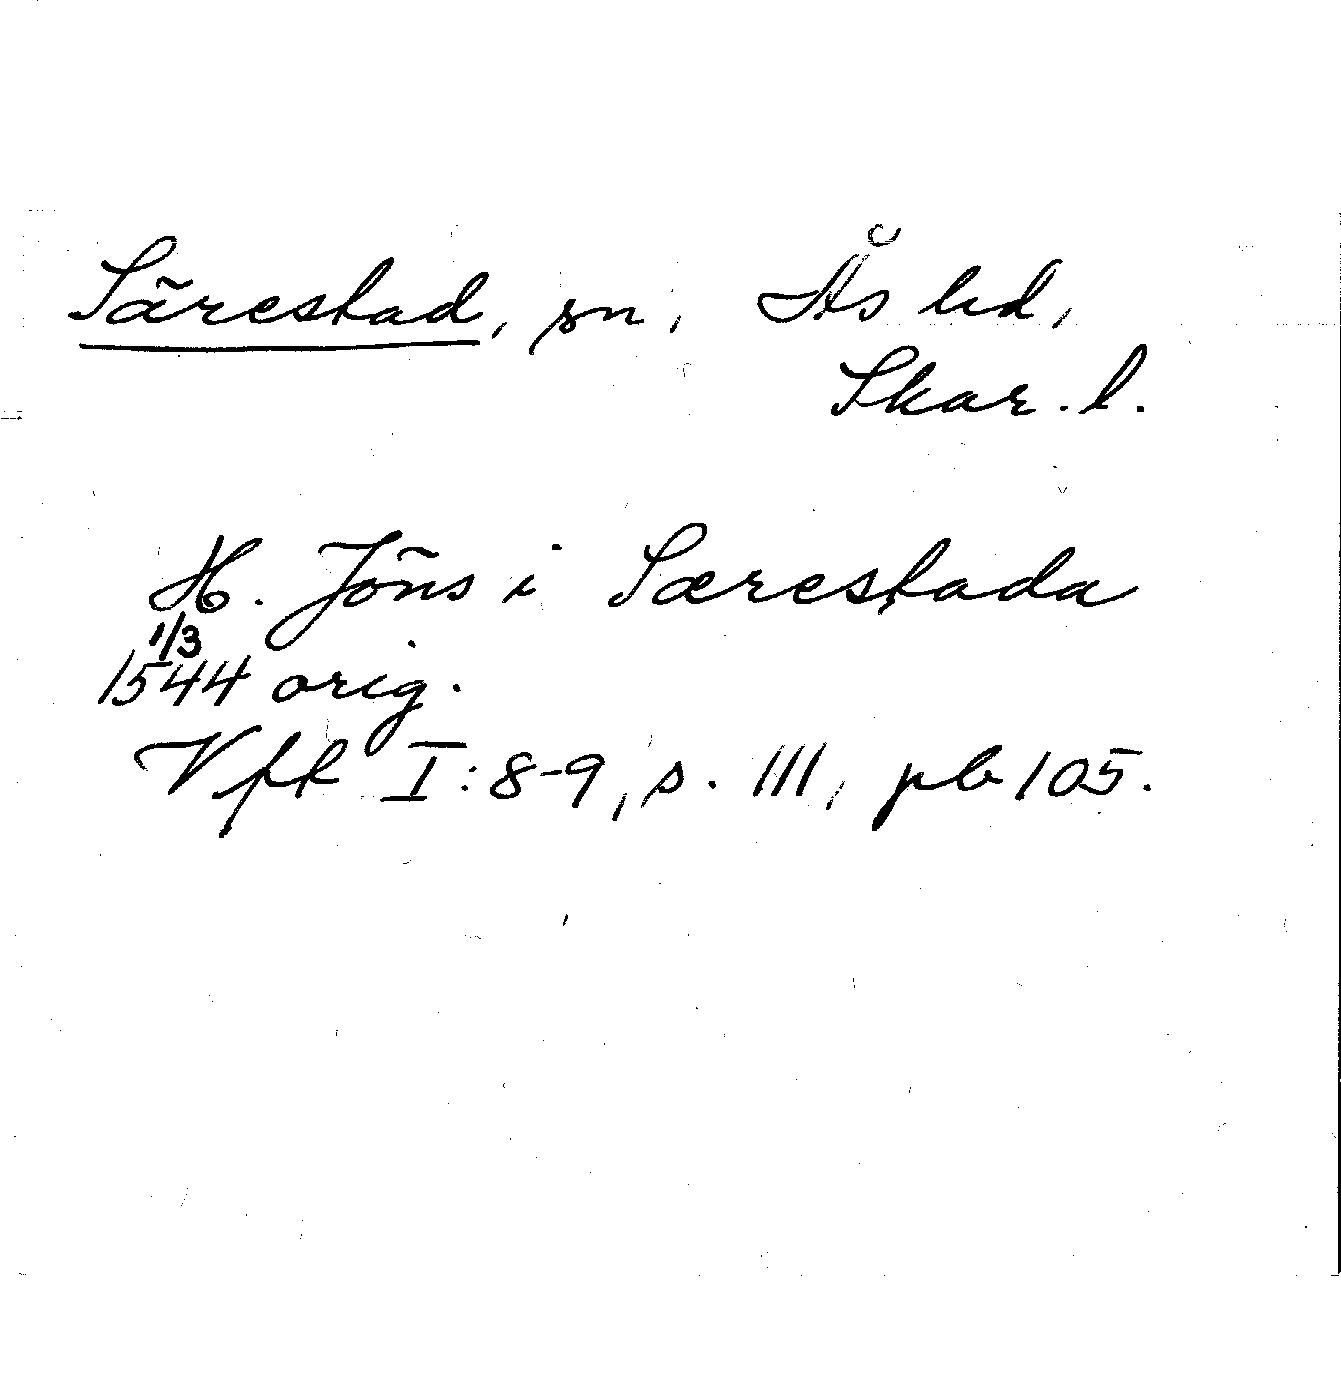 Särestad, sn, Ås hd,
Skar. l.
H. Jöns i Særestada
1/3
1544 orig.
Vfk I:8-9, s. 111, pb 105.